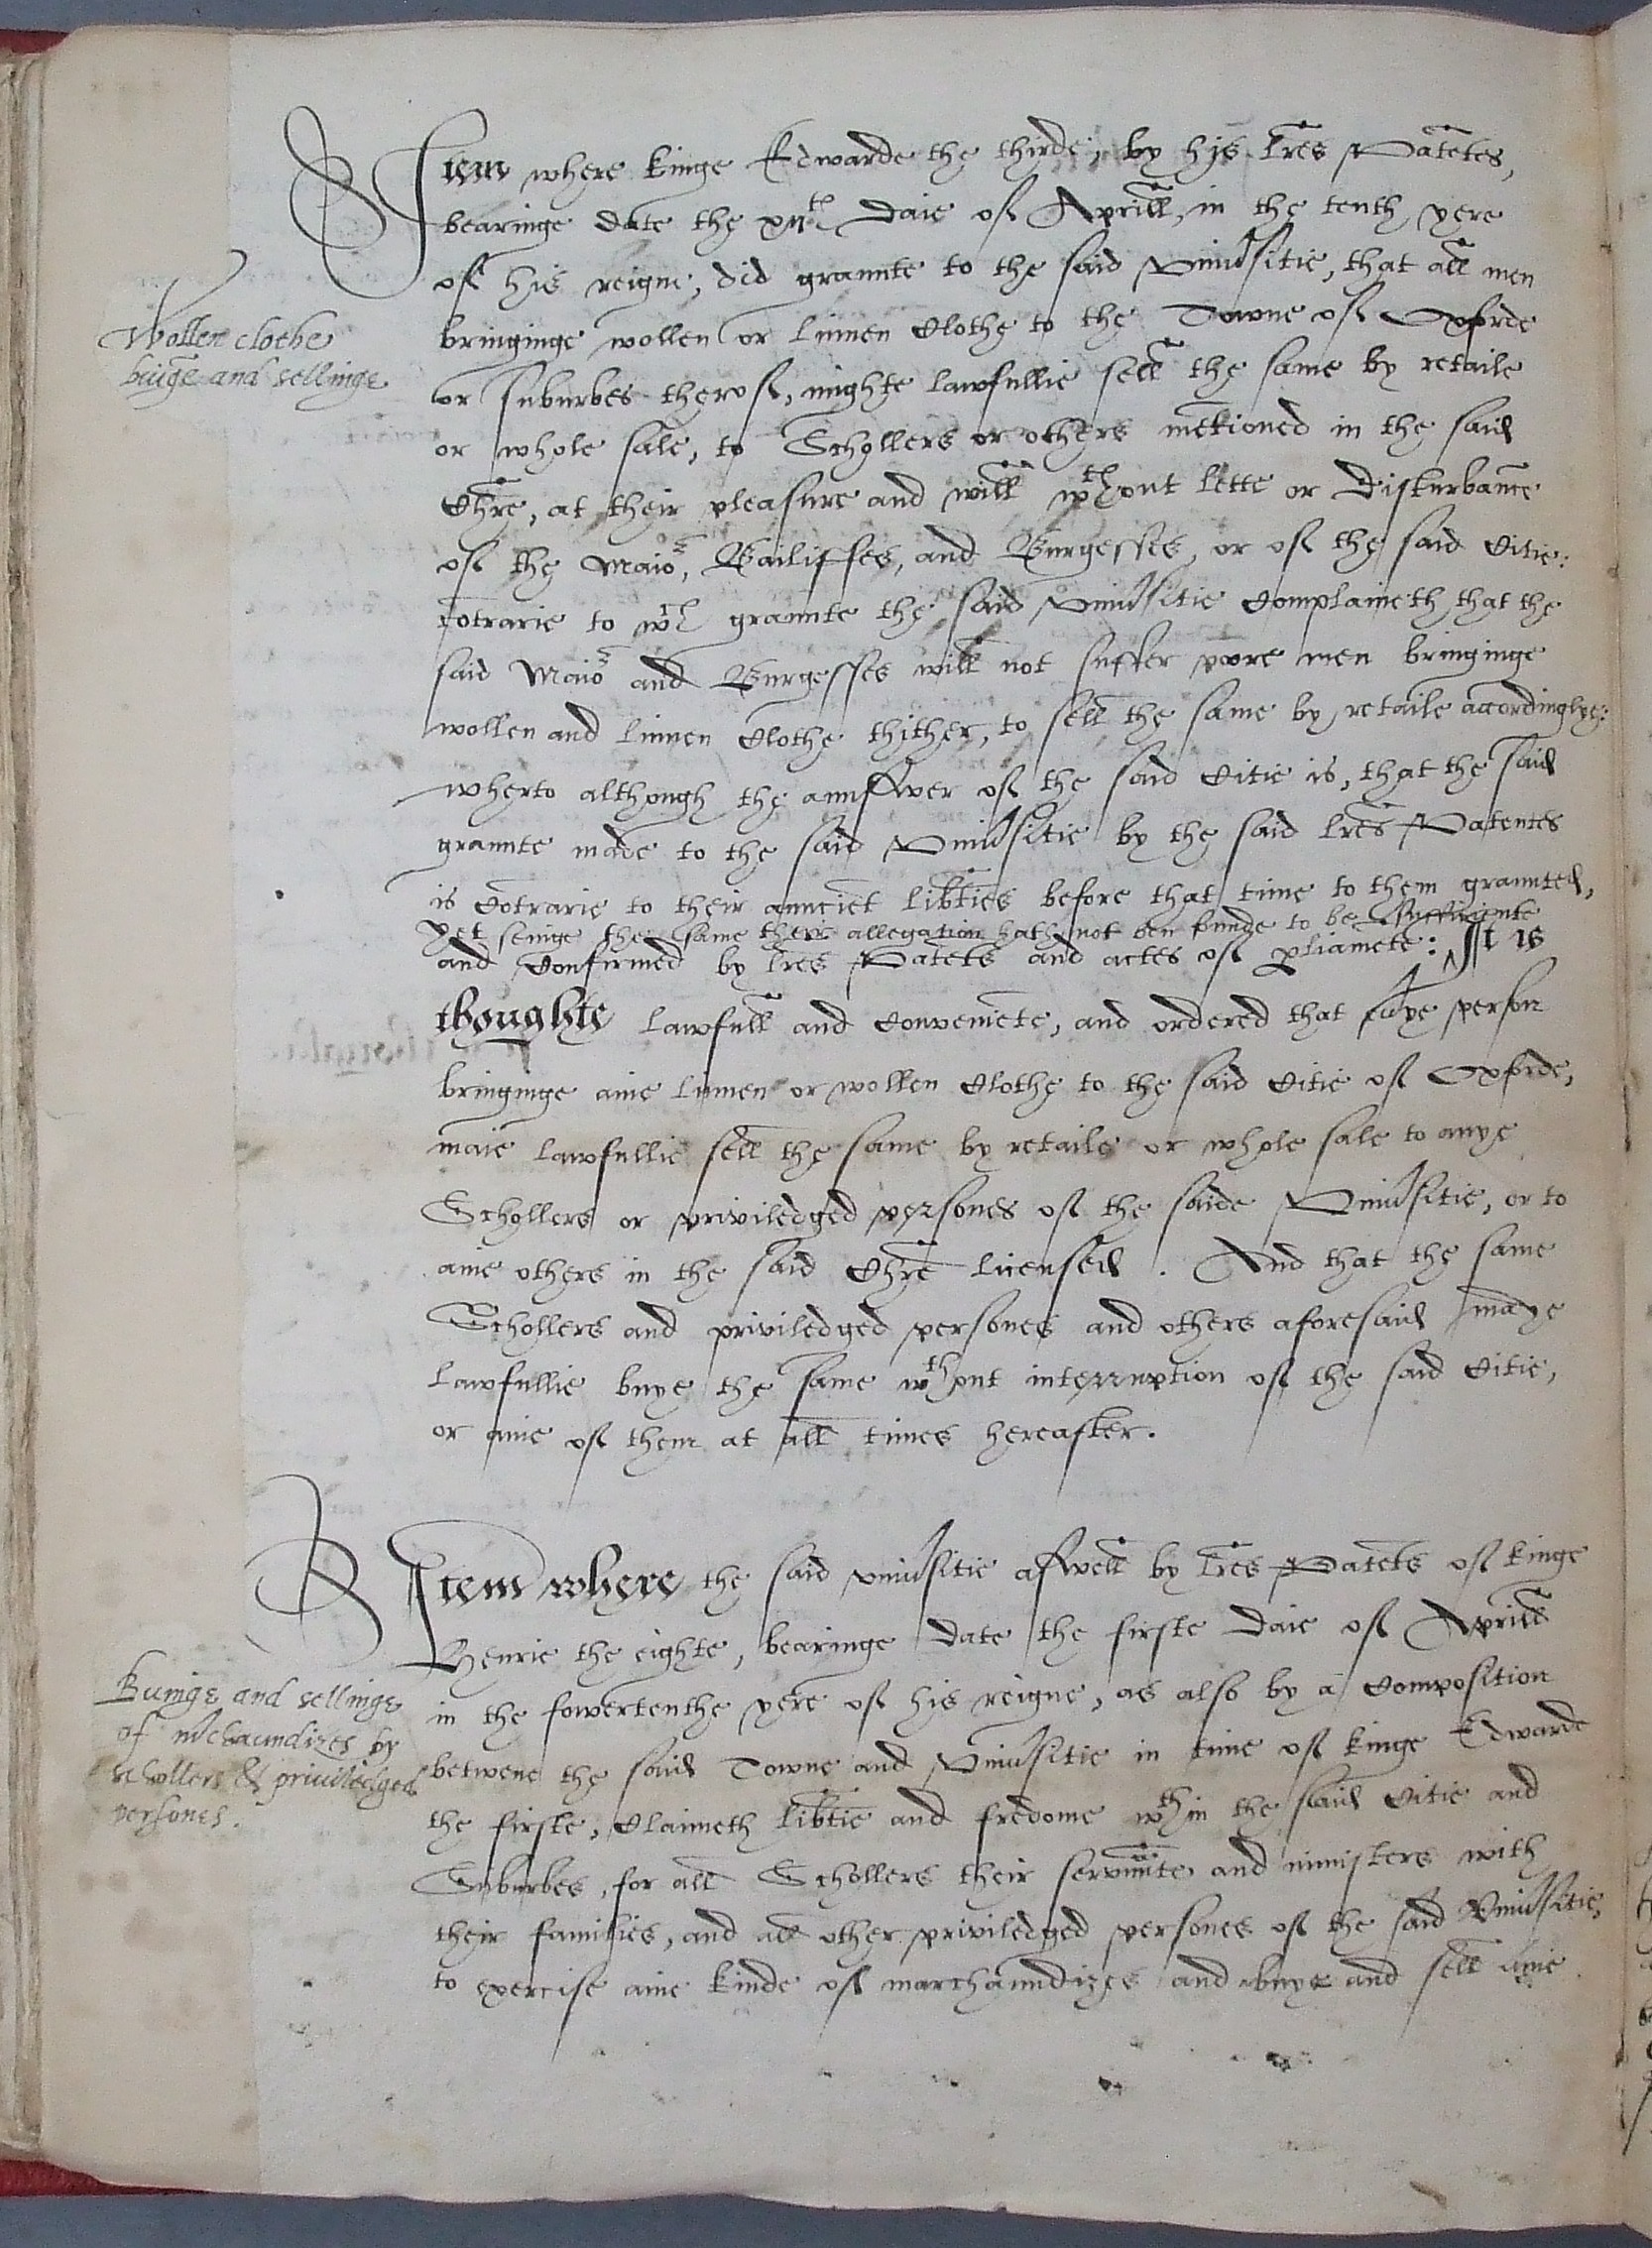 Item where kinge Edwarde the thirde, by his lr̃es Patẽtes,
bearinge date the xijth daie of Aprill, in the tenth yere
of his reigne, did graunte to the said Vniu'sitie, that all men
Wollen clothe
buiĩge and sellinge
bringinge wollen or linnen Clothe to the Towne of Oxforde
or suburbes therof, mighte lawfullie sell the same by retaile
or whole sale, to Schollers or others mẽtioned in the said
Chr̃e, at their pleasure and will wthout lette or disturbañce
of the Maior, Bailiffes, and Burgesses, or of the said Citie:
cõtrarie to wch graunte the said Vniu'sitie Complaineth that the
said Maior and Burgesses will not suffer poore men bringinge
wollen and linnen Clothe thither, to sell the same by retaile accordinglye:
wherto although the aunswer of the said Citie is, that the said
graunte made to the said Vniu'sitie by the said lr̃es Patentes
is Cõtrarie to their aunciẽt lib̃ties before that time to them graunted,
yet seinge the same theire allegation hath not ben funde to be sufficiente
and Confirmed by lr̃es Patẽts and actes of pliamẽte: It is
thoughte lawfull and Conveniẽte, and ordered that eu'ye person
bringinge anie linnen or wollen Clothe to the said Citie of Oxforde,
maie lawfullie sell the same by retaile or whole sale to anye
Schollers or priviledged persones of the saide Vniu'sitie, or to
anie others in the said Chr̃e licensed. And that the same
Schollers and priviledged persones and others aforesaid maye
lawfullie buye the same wthout interruption of the said Citie,
or anie of them at all times hereafter.
Item where the said vniu'sitie aswell by lr̃es Patẽts of kinge
Henrie the eighte, bearinge date the firste daie of Aprill
Buinge and sellinge
of m'chaundizes by
schollers & priuiledged
persones.
in the fowertenthe yere of his reigne, as also by a Composition
betwene the said Towne and Vniu'sitie in time of kinge Edwarde
the firste, Claimeth lib̃tie and fredome wthin the said Citie and
Suburbes, for all Schollers their servaunte and ministers with
their families, and all other priviledged persones of the said Vniu'sitie,
to exercise anie kinde of marchaundizes and buye and sell anie